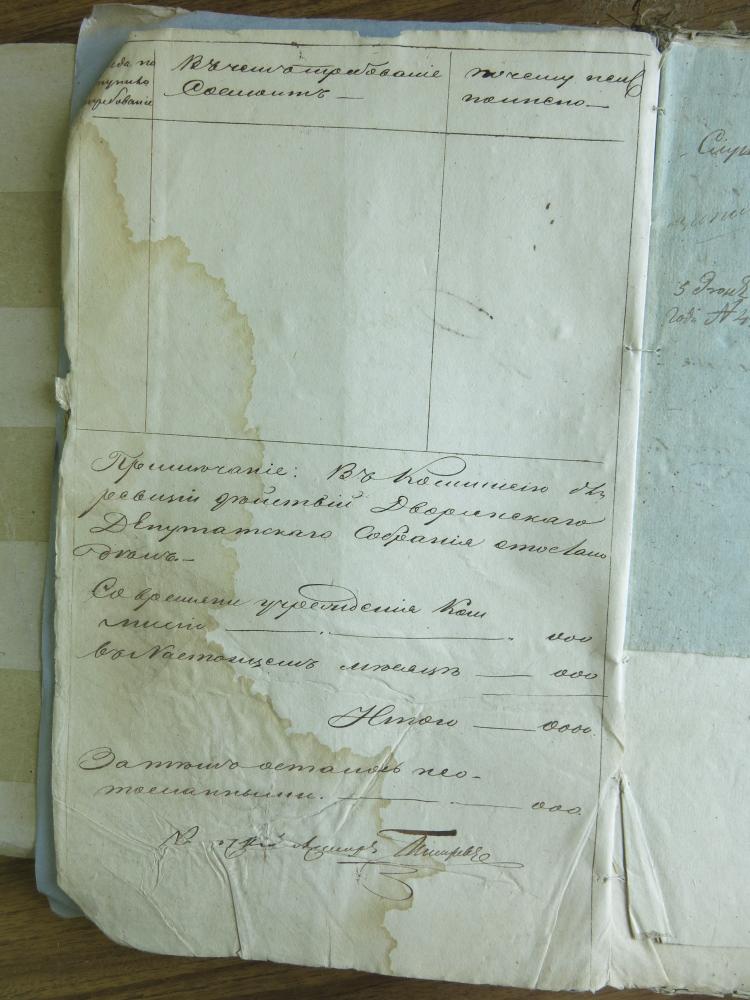 ступило
требованіе
Въ чемъ требованіе
Состоитъ —
почему неис
полнено —
Примѣчаніе: Въ Комиссію для
ревизіи дѣйствій Дворянскаго
Депутатскаго Собранія отослано
дѣлъ —
Со времяни учрежденія Ком
мисіи — 000
въ Настоящемъ мѣсяцѣ — 000
Итого — 0000.
Затѣмъ осталось нео-
тосланными. — 000.
Случ
5 Іюня
года № 4